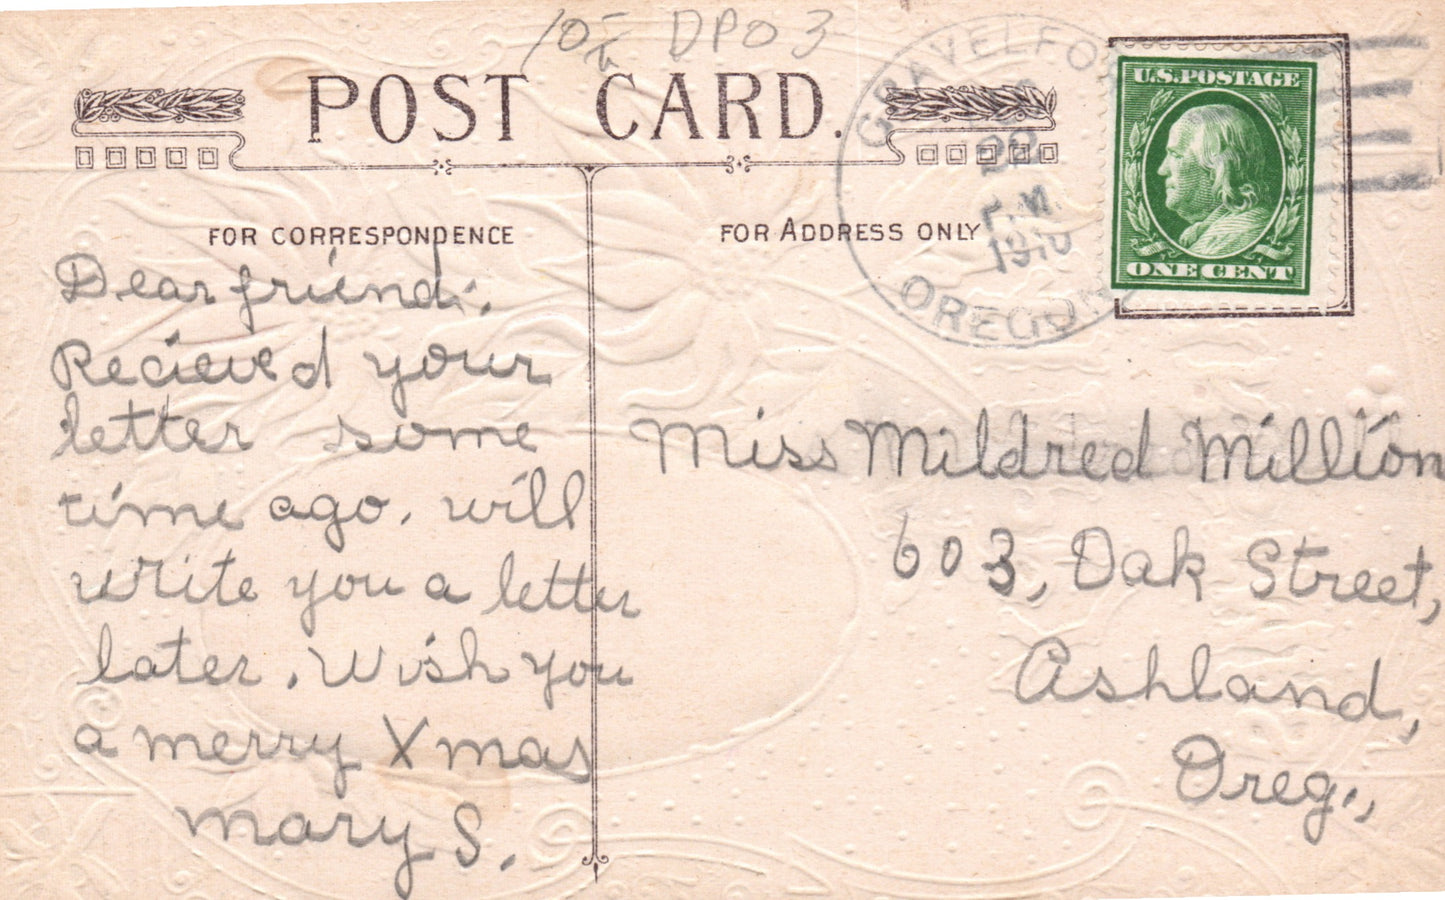 DPO 3
POST CARD.
FOR CORRESPONDENCE
FOR ADDRESS ONLY
OREGON
P.M.
1910
U.S. POSTAGE
ONE CENT
Dear friend:
Recieved your
letter some
time ago. will
write you a letter
later. Wish you
a merry Xmas
Mary S.
Miss Mildred Million
603, Oak Street,
Ashland,
Oreg.,